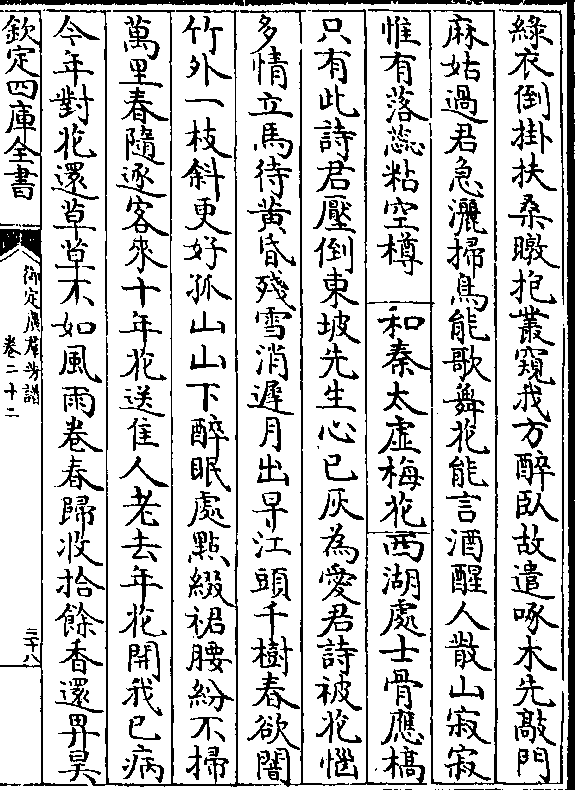 綠衣倒掛扶桑暾抱叢窺我方醉臥故遣啄木先敲門
麻姑過君急灑掃鳥能歌舞花能言酒醒人散山寂寂
惟有落蕊粘空樽 和秦太虛梅花西湖處士骨應槁
只有此詩君壓倒東坡先生心已灰為愛君詩被花惱
多情立馬待黃昏殘雪消遲月出早江頭千樹春欲闇
竹外一枝斜更好孤山山下醉眠處點綴裙腰紛不掃
萬里春隨逐客來十年花送佳人老去年花開我已病
今年對花還草草不如風雨卷春歸收拾餘香還畀昊
欽定四庫全書
御定廣群芳譜
卷二十二
三十八